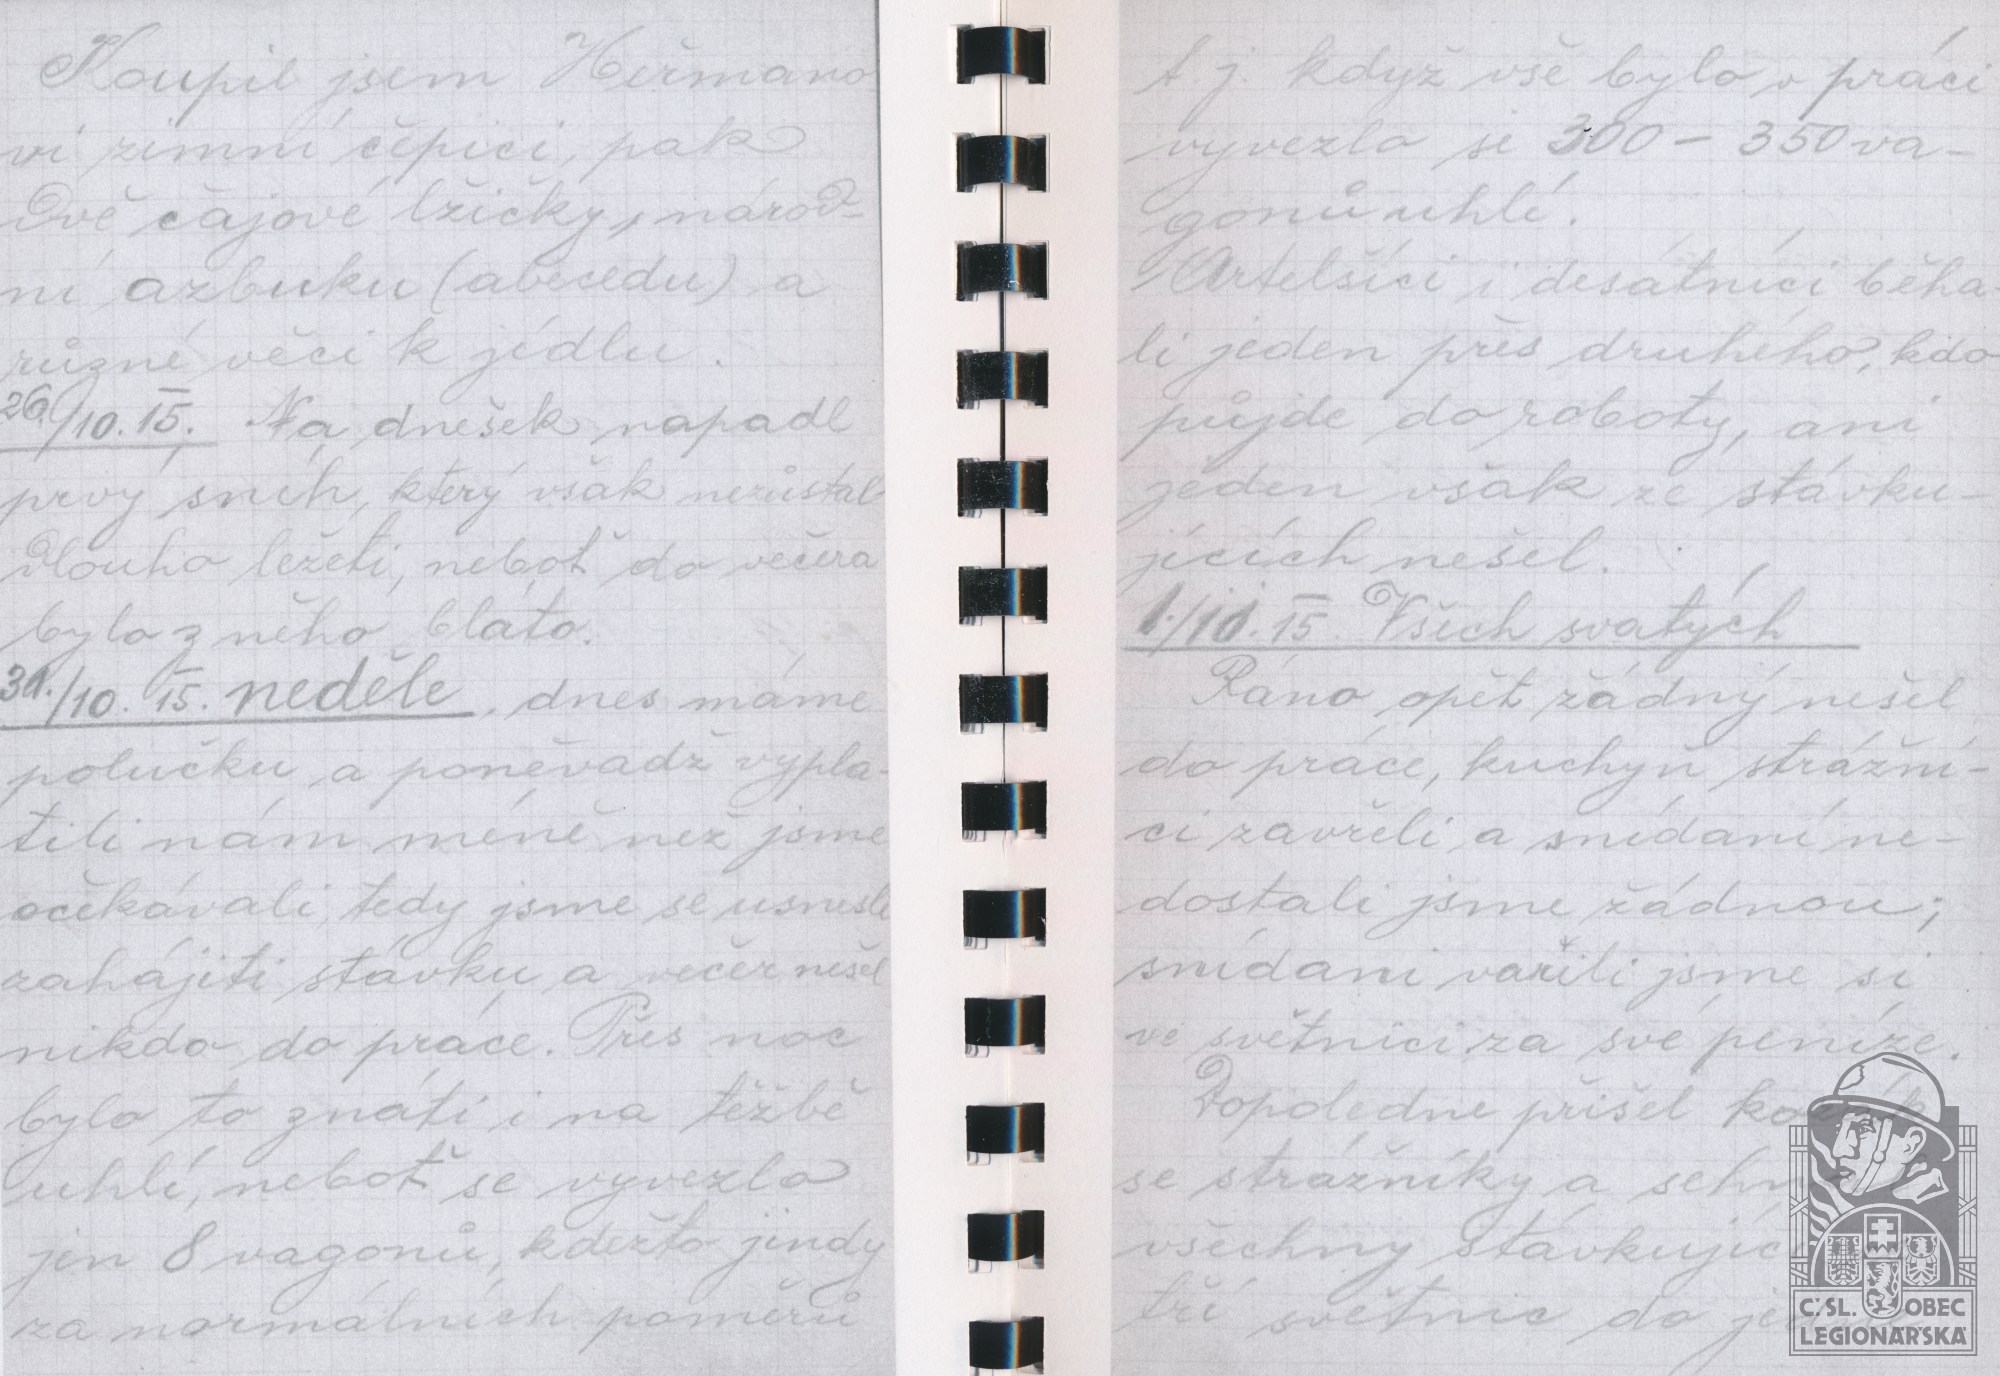 Koupil jsem Heřmano
vi zimní čépici, pak
dvě čajové lžičky, národ-
ní azbuku (abecedu) a
různé věci k jídlu.
26/10. 15. Na dnešek napadl
prvý sníh, který však nezůstal
dlouho ležeti, neboť do večera
bylo z něho bláto.
31./10. 15. neděle, dnes máme
polučku a poněvadž vypla-
tili nám méně než jsme
očekávali, tedy jsme se usnesli
zahájiti stávku a večer nešel
nikdo do práce. Přes noc
bylo to znáti i na těžbě
uhlí, neboť se vyvezlo
jen 8 vagonů, kdežto jindy
za normálních poměrů
t. j. když vše bylo v práci
vyvezlo se 300 - 350 va-
gonů uhlí.
Artelšíci i desátníci běha-
li jeden přes druhého, kdo
půjde do roboty, ani
jeden však ze stávku-
jících nešel.
1./11. 15. Všich svatých
Ráno opět žádný nešel
do práce, kuchyň strážní-
ci zavřeli a snídaní ne-
dostali jsme žádnou;
snídani vařili jsme si
ve světnici za své peníze.
Dopoledne přišel kozák
se strážníky a sehn
všechny stávkujíc
tří světnic do je
Č.SL. OBEC
LEGIONÁŘSKÁ